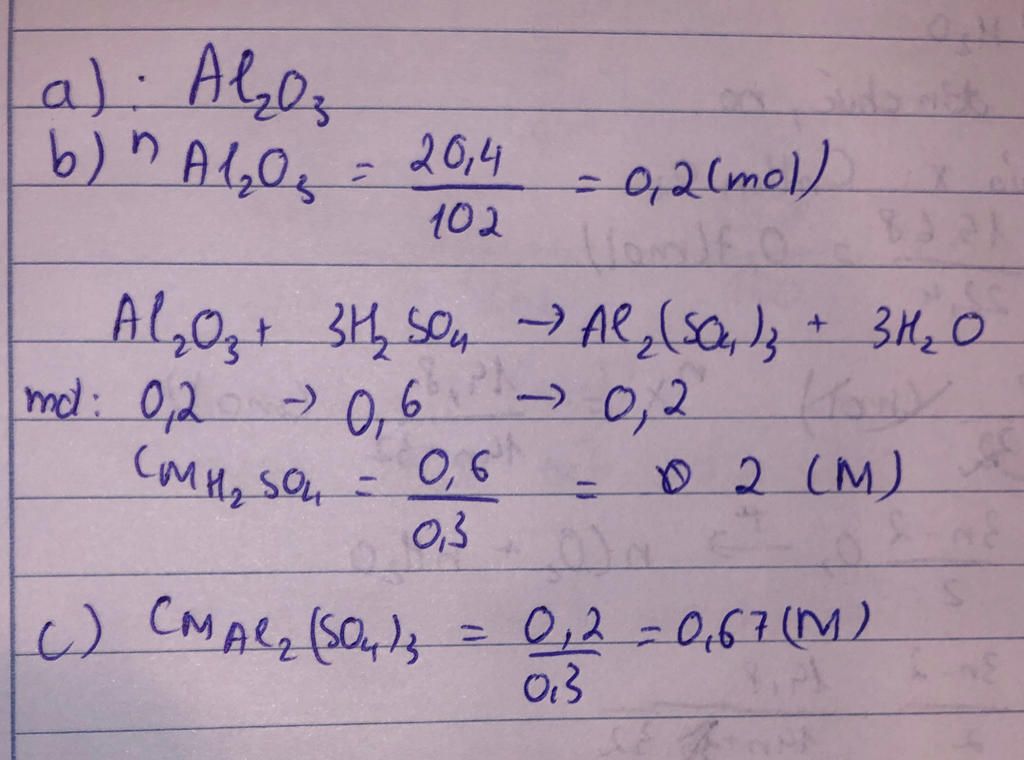 a) : Al₂O₃
b) n Al₂O₃ = 20,4 / 102 = 0,2 (mol)
Al₂O₃ + 3H₂SO₄ → Al₂(SO₄)₃ + 3H₂O
mol: 0,2 → 0,6 → 0,2
CM H₂SO₄ = 0,6 / 0,3 = 2 (M)
c) CM Al₂(SO₄)₃ = 0,2 / 0,3 = 0,67 (M)